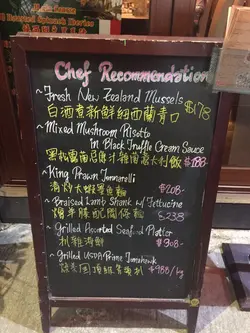 Roasted Spanish Iberico
Chef Recommendation
~ Fresh New Zealand Mussels
白酒煮新鮮紐西蘭青口 $178
~ Mixed Mushroom Risotto
in Black Truffle Cream Sauce
黑松露 汁雜菌意大利飯 $188
~ King Prawn Tonnarelli
大蝦 麵 $208-
~ Braised Lamb Shank w/ Fettucine
燴羊膝配闊條麵 $238-
~ Grilled Assorted Seafood Platter
扒雜海鮮 $308-
~ Grilled USDA Prime Tomahawk
燒美國頂級斧頭扒 $980/kg